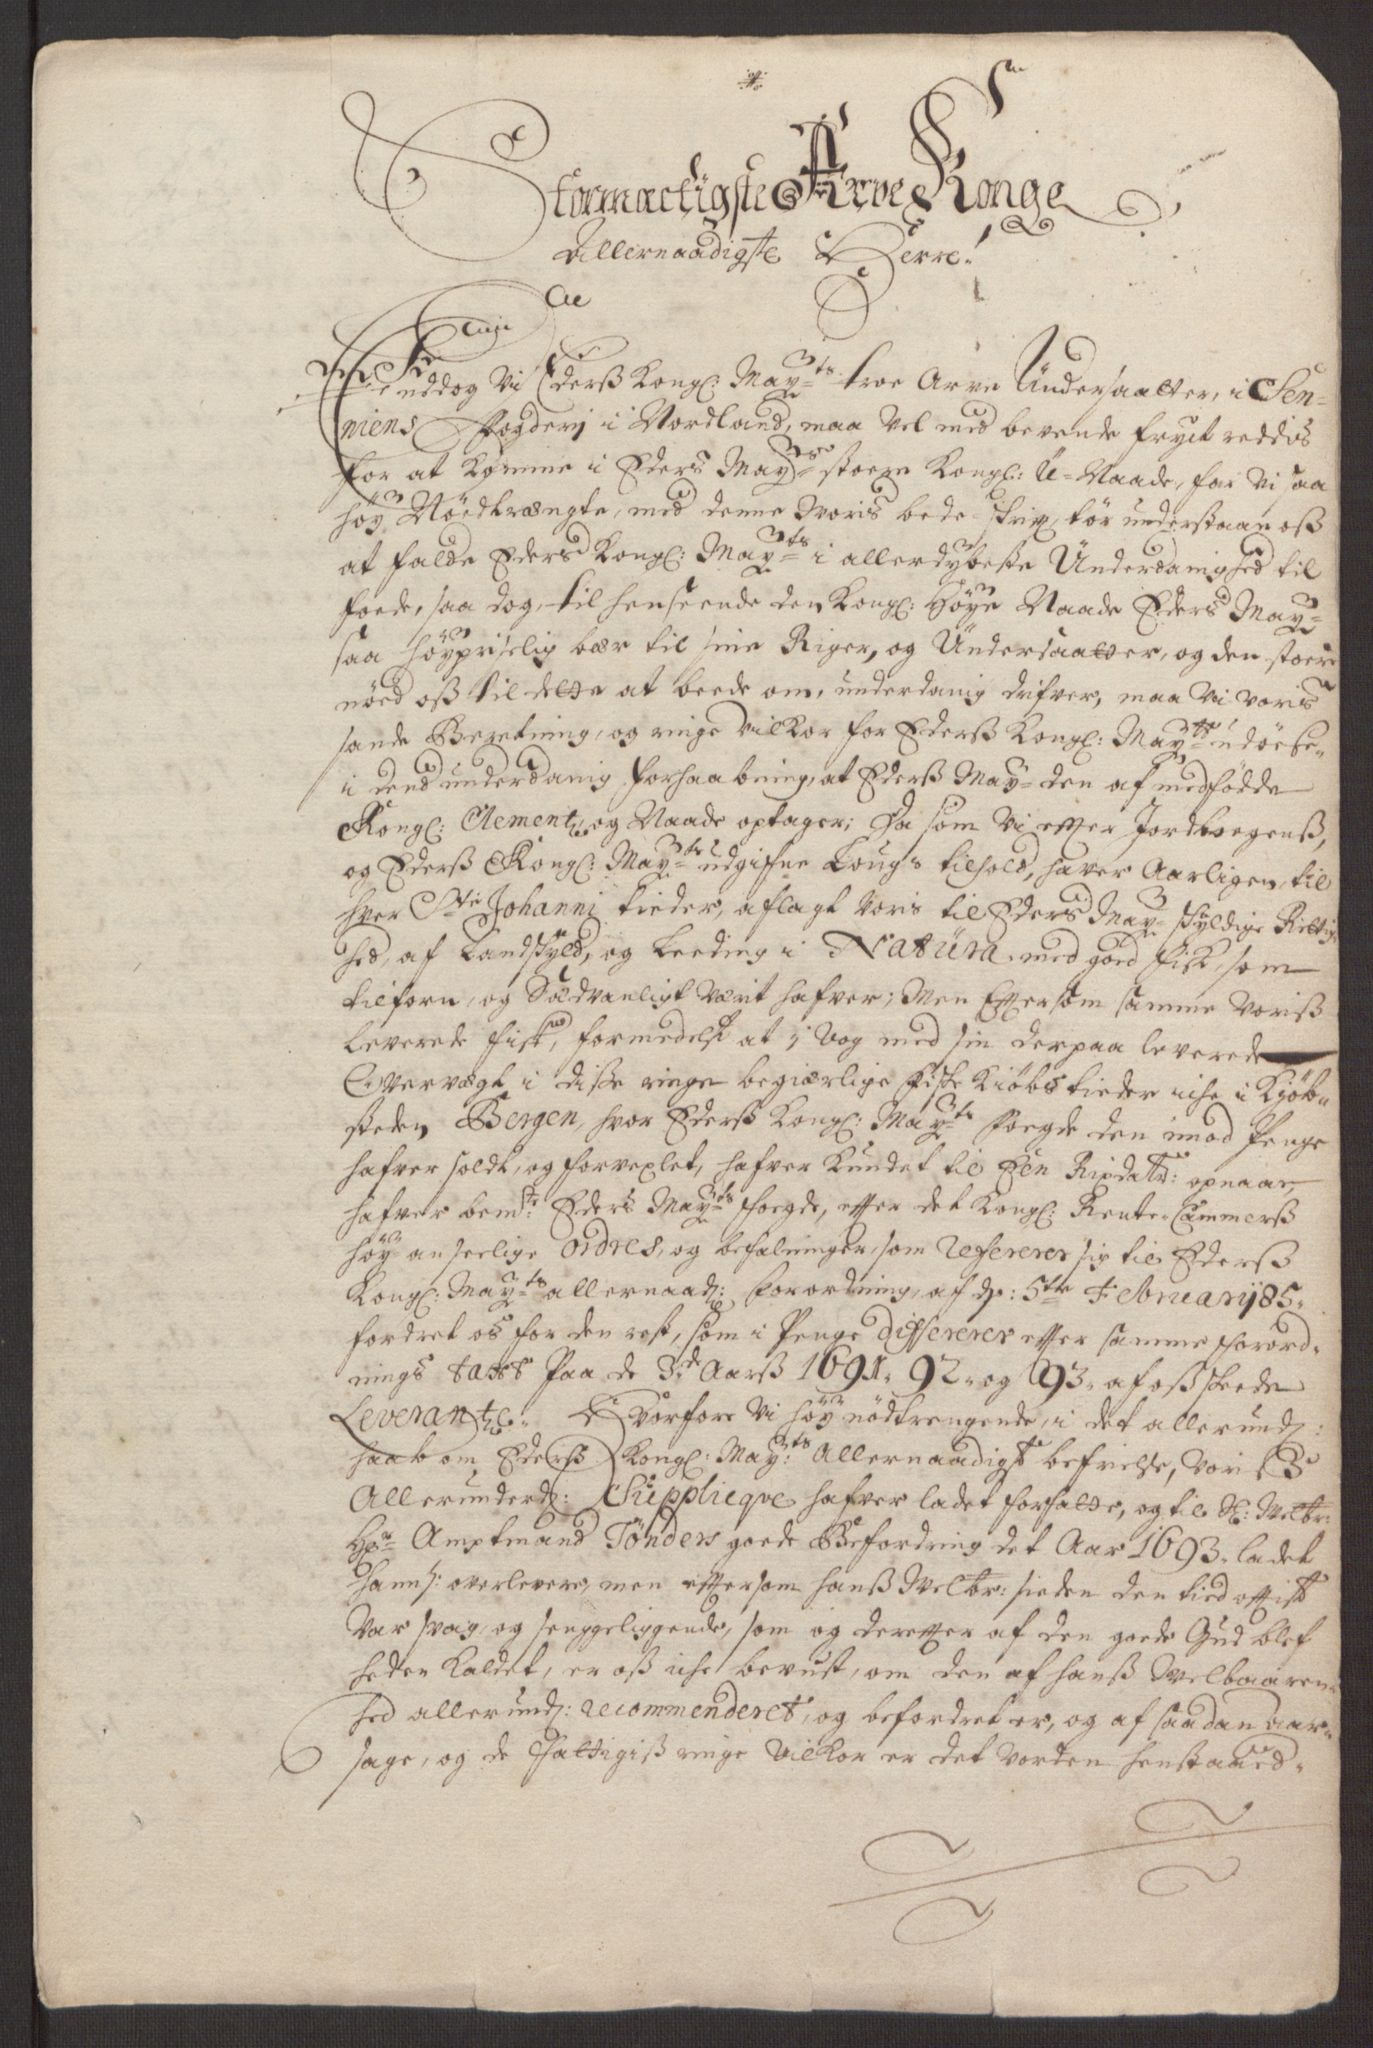 Stormægtigste Arve Konge
Allernaadigste Herre!
Endog Vi Ederß Kongl: Mayts troe Arve Undersaatter, i Sen-
niens Fogderj i Nordland, maa vel med bevende fryct reddis
for at komme i Eders Mays store Kongl: U-Naade, for Vi saa
höy Nöedtrængte, med denne Woris bede-skrift, tör understaae oß
at falde Eders Kongl: Mayts i allerdybeste Underdanighed til
foede, saa dog, til henseende den Kongl: Höye Naade Eders May
saa höypriselig bær til sine Riger, og Undersaatter, og den stoere
nöed oß til dette at beede om, underdanig drifver, maa Vi voris
sande Beretning, og ringe vilkor for Ederß Kongl: Maytt udöese
i dend underdanig forhaabning, at Ederß May den af medfödde
Kongl: Clementz og Naade optager; Da som Vi effter Jordboegenß,
og Ederß Kongl: Mayts udgifne Lougs tilhold, haver Aarligen til
hver Ste Johanni tieder, aflagt voris til Eders May skyldige Rettig
hed, af Landskyld, og Leeding i Natura, med goed fisk, som
tilforn, og Sædvanligt værit hafver; Men Effersom samme voriß
leverede fisk, formedelst at j vog med sin derpaa leverede
Overvægt i diße ringe begiærlige fiske kiöbs tieder iche i Kjöb-
steden Bergen, hvor Ederß Kongl: Mayts foegde den imod Penge
hafver soldt, og forvexlet, hafver kundet til Een Rixdaler: opnaae,
hafver bemte Eders Mayts foegde, effter det Kongl: Rente-Cammerß
höy anseelige Ordres, og befalninger, som refererer sig til Ederß
Kongl: Mayts allernaad: forordning, af d: 5te Februarij 85,
fordret os for den rest, som i Penge differerer effter samme forord-
nings taxt Paa de 3de Aarß 1691, 92, og 93, af oß skeede
Leverantze, Hvorfore Vi höy nödtrengende, i det allerund:
haab om Ederß Kongl: Mayts Allernaadigste befrielse, voris
Allerunderd: Suppliqve hafver ladet forfatte, og til Sl: Welbr:
Hr Amptmand Tönders goede Befordring det Aar 1693, ladet
hannß: overlevere, men effersom hanß Welbr: sieden den tied offtist
Var svag, og sengeliggende, som og dereffter af den goede Gud blef
heden kaldet, er oß iche bevust, om den af hanß Welbaaren-
hed allerund: recommenderet, og befordret er, og af saadan aar-
sage, og de fattigiß ringe vilkor er det vorden henstaaed,